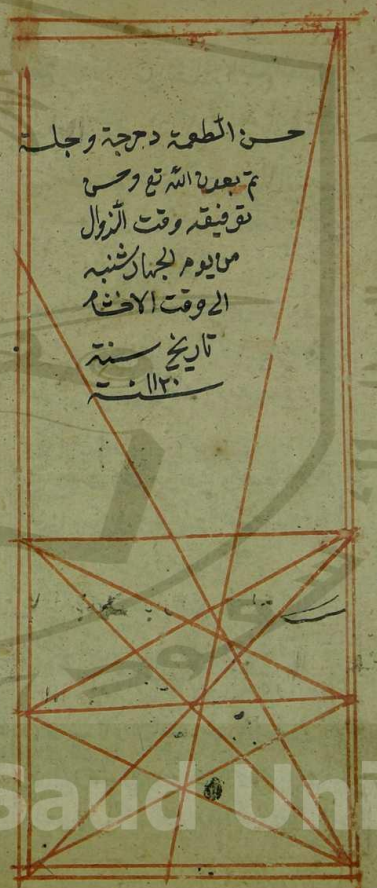 حسن الطعمة دحرجة وجلسة
تم بعون الله تع وحسن
توفيقه وقت الزوال
من يوم الجهارشنبه
الى وقت الاختتام
تاريخ سنة
سنة ١١٢٠
Saud Uni